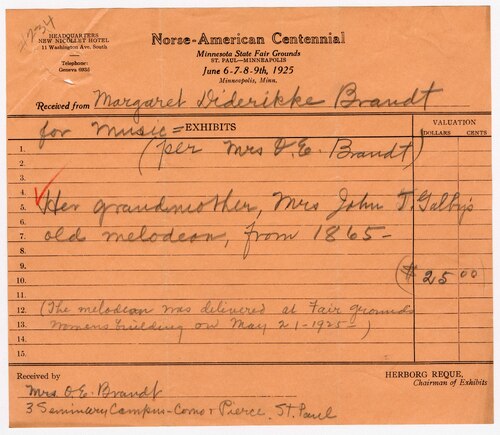 HEADQUARTERS
NEW NICOLLET HOTEL
11 Washington Ave. South
Telephone:
Geneva 6935
Norse-American Centennial
Minnesota State Fair Grounds
ST. PAUL—MINNEAPOLIS
June 6-7-8-9th, 1925
Minneapolis, Minn.
Received from Margaret Diderikke Brandt
for Music = EXHIBITS
VALUATION
DOLLARS CENTS
1. (per Mrs O. E. Brandt)
2.
3.
4.
5. Her grandmother, Mrs John T. Galby's
6.
7. old melodeon, from 1865-
8.
9.
10. ($25 00
11.
12. (The melodeon was delivered at Fair grounds
13. Womens building on May 21-1925-)
14.
15.
Received by
HERBORG REQUE,
Chairman of Exhibits
Mrs O. E. Brandt
3 Seminary Campus - Como & Pierce, St. Paul